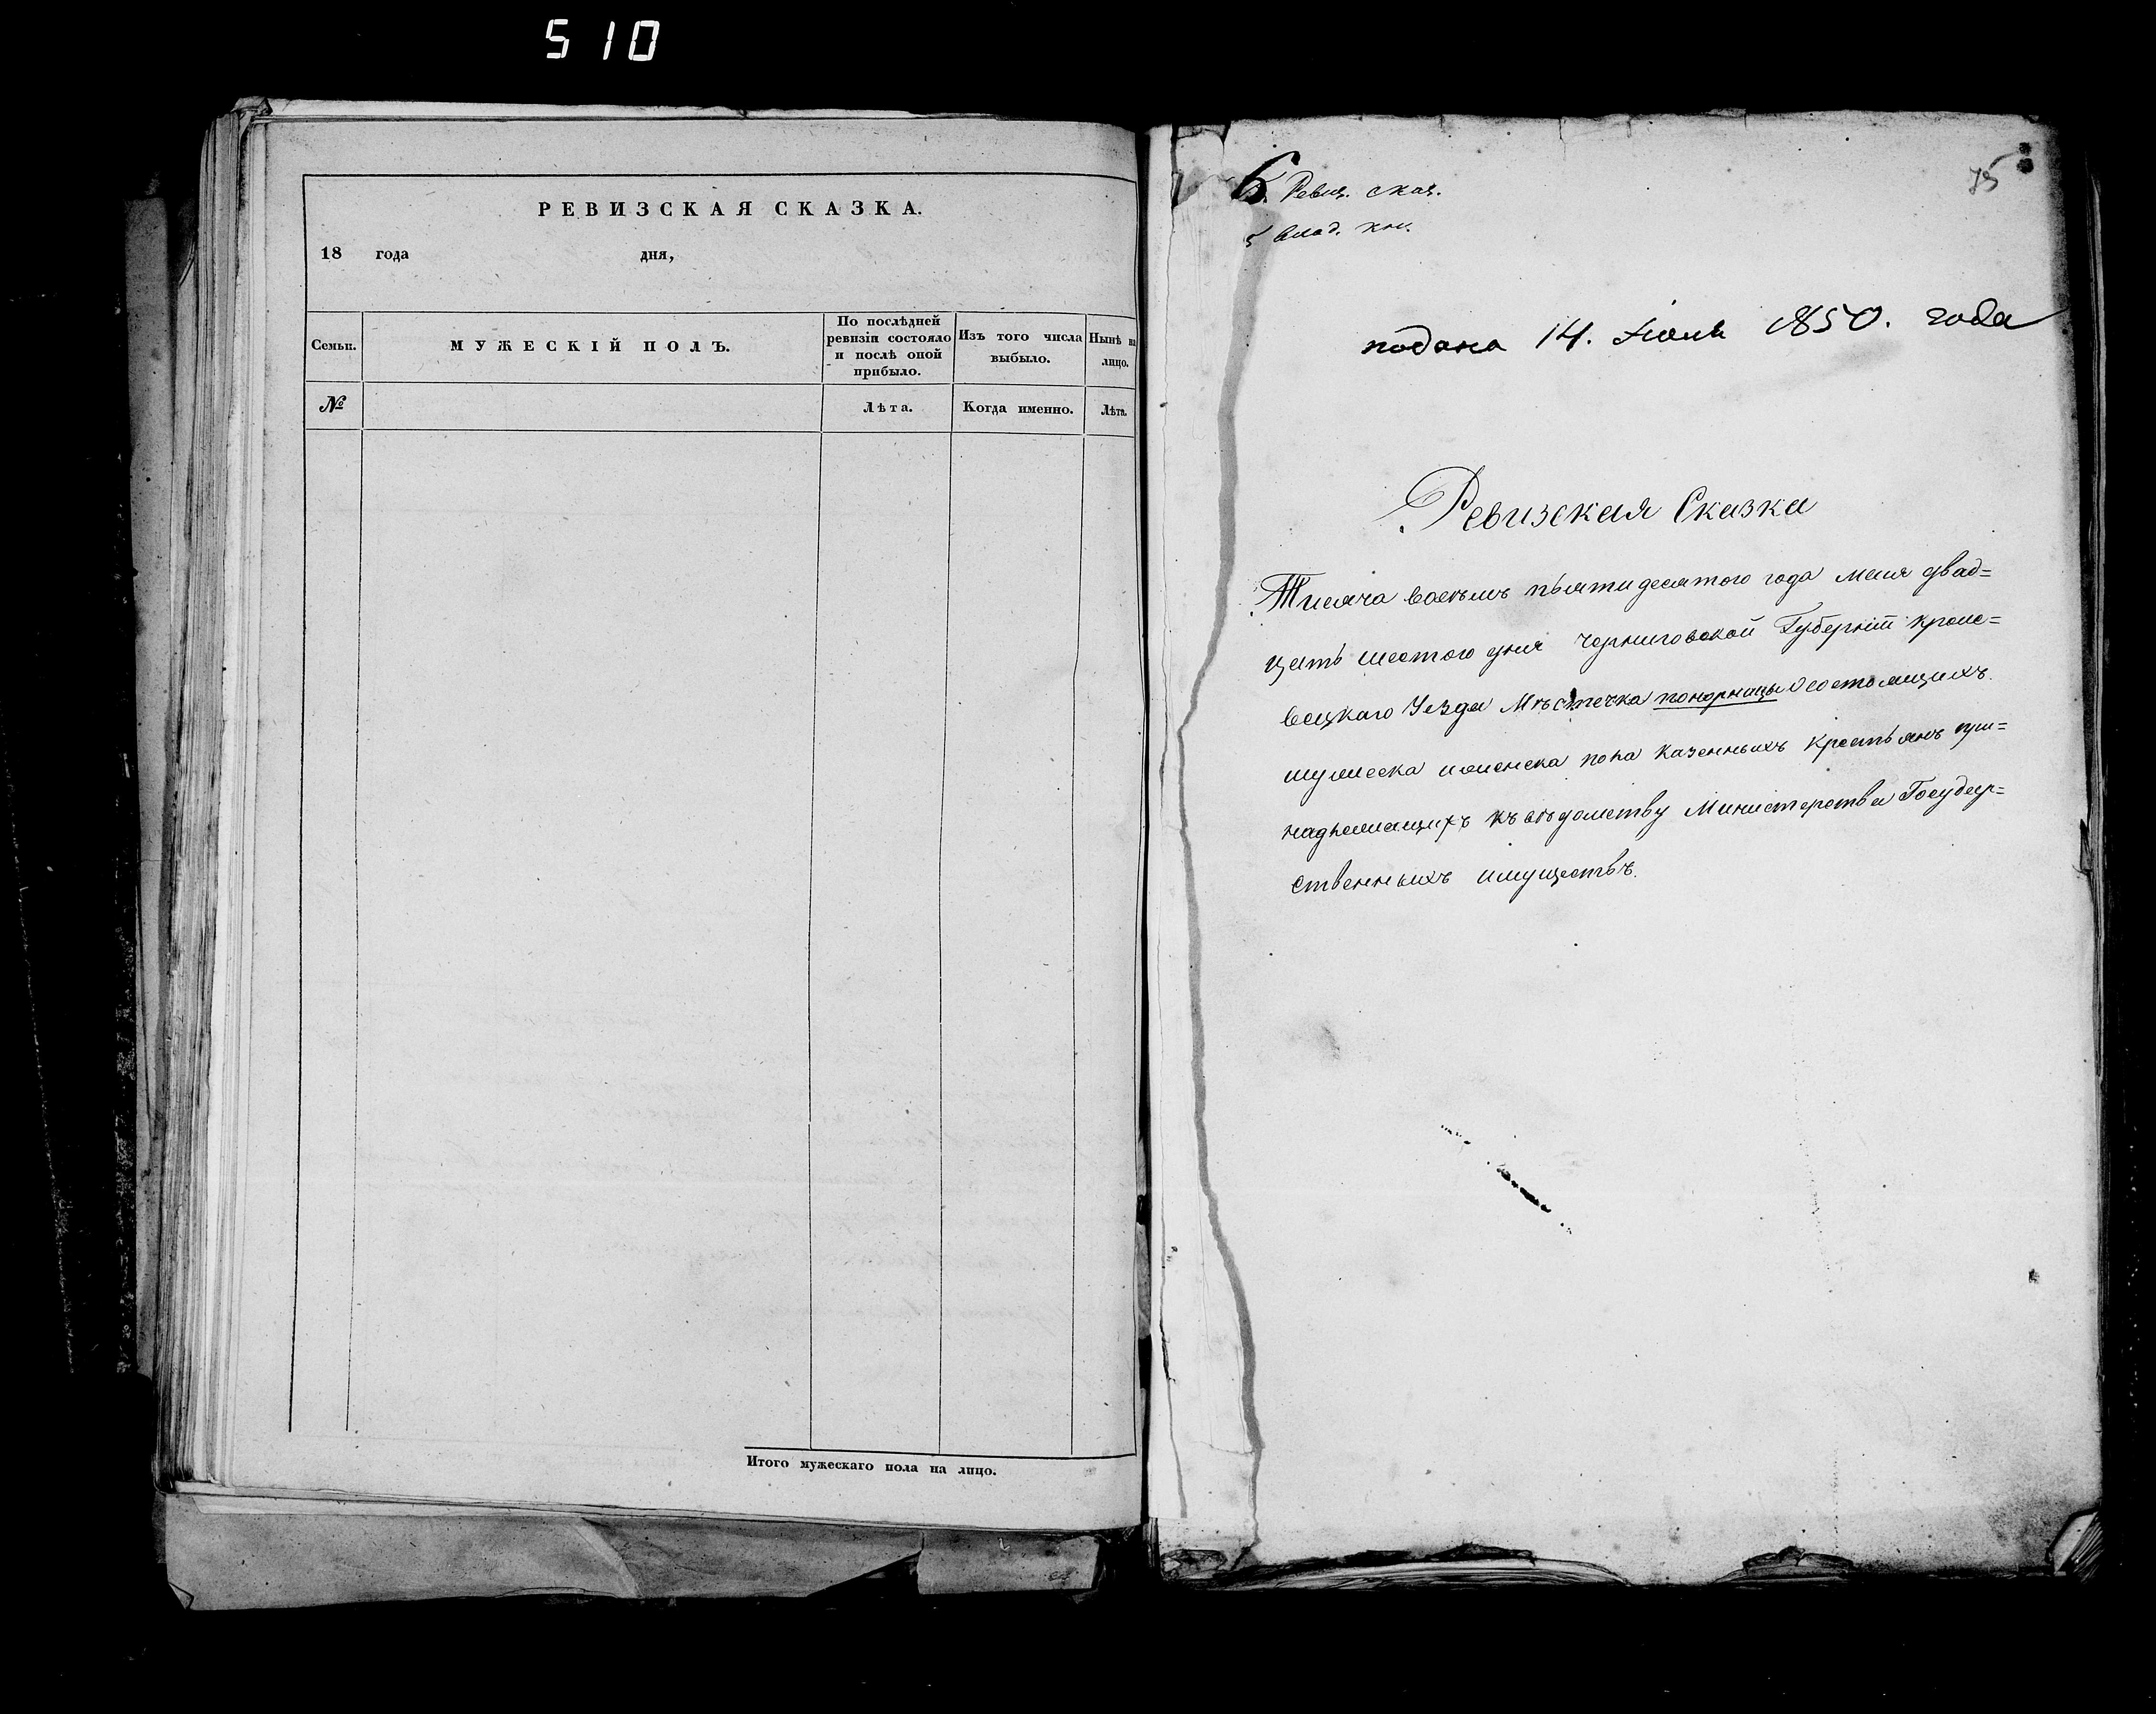 510
РЕВИЗСКАЯ СКАЗКА.
18 года дня,
Семьи.
МУЖЕСКІЙ ПОЛЪ.
По послѣдней ревизіи состояло и послѣ оной прибыло.
Изъ того числа выбыло.
Нынѣ на лицо.
№
Лѣта.
Когда именно.
Лѣта.
Итого мужескаго пола на лицо.
75
6. Ревиз. сказ.
подана 14. Іюня 1850. года
Ревизская Сказка
Тисяча восемъ пьятидесятого года мая двад=
цять шестого дня Черниговской Губерніи кроле=
вецкаго Уезда Мѣстечка понорницы О состоящихъ
мужеска иженска пола Казенныхъ крестьянъ при=
надлежащихъ къ вѣдомству Министерства Государ=
ственныхъ имуществъ.